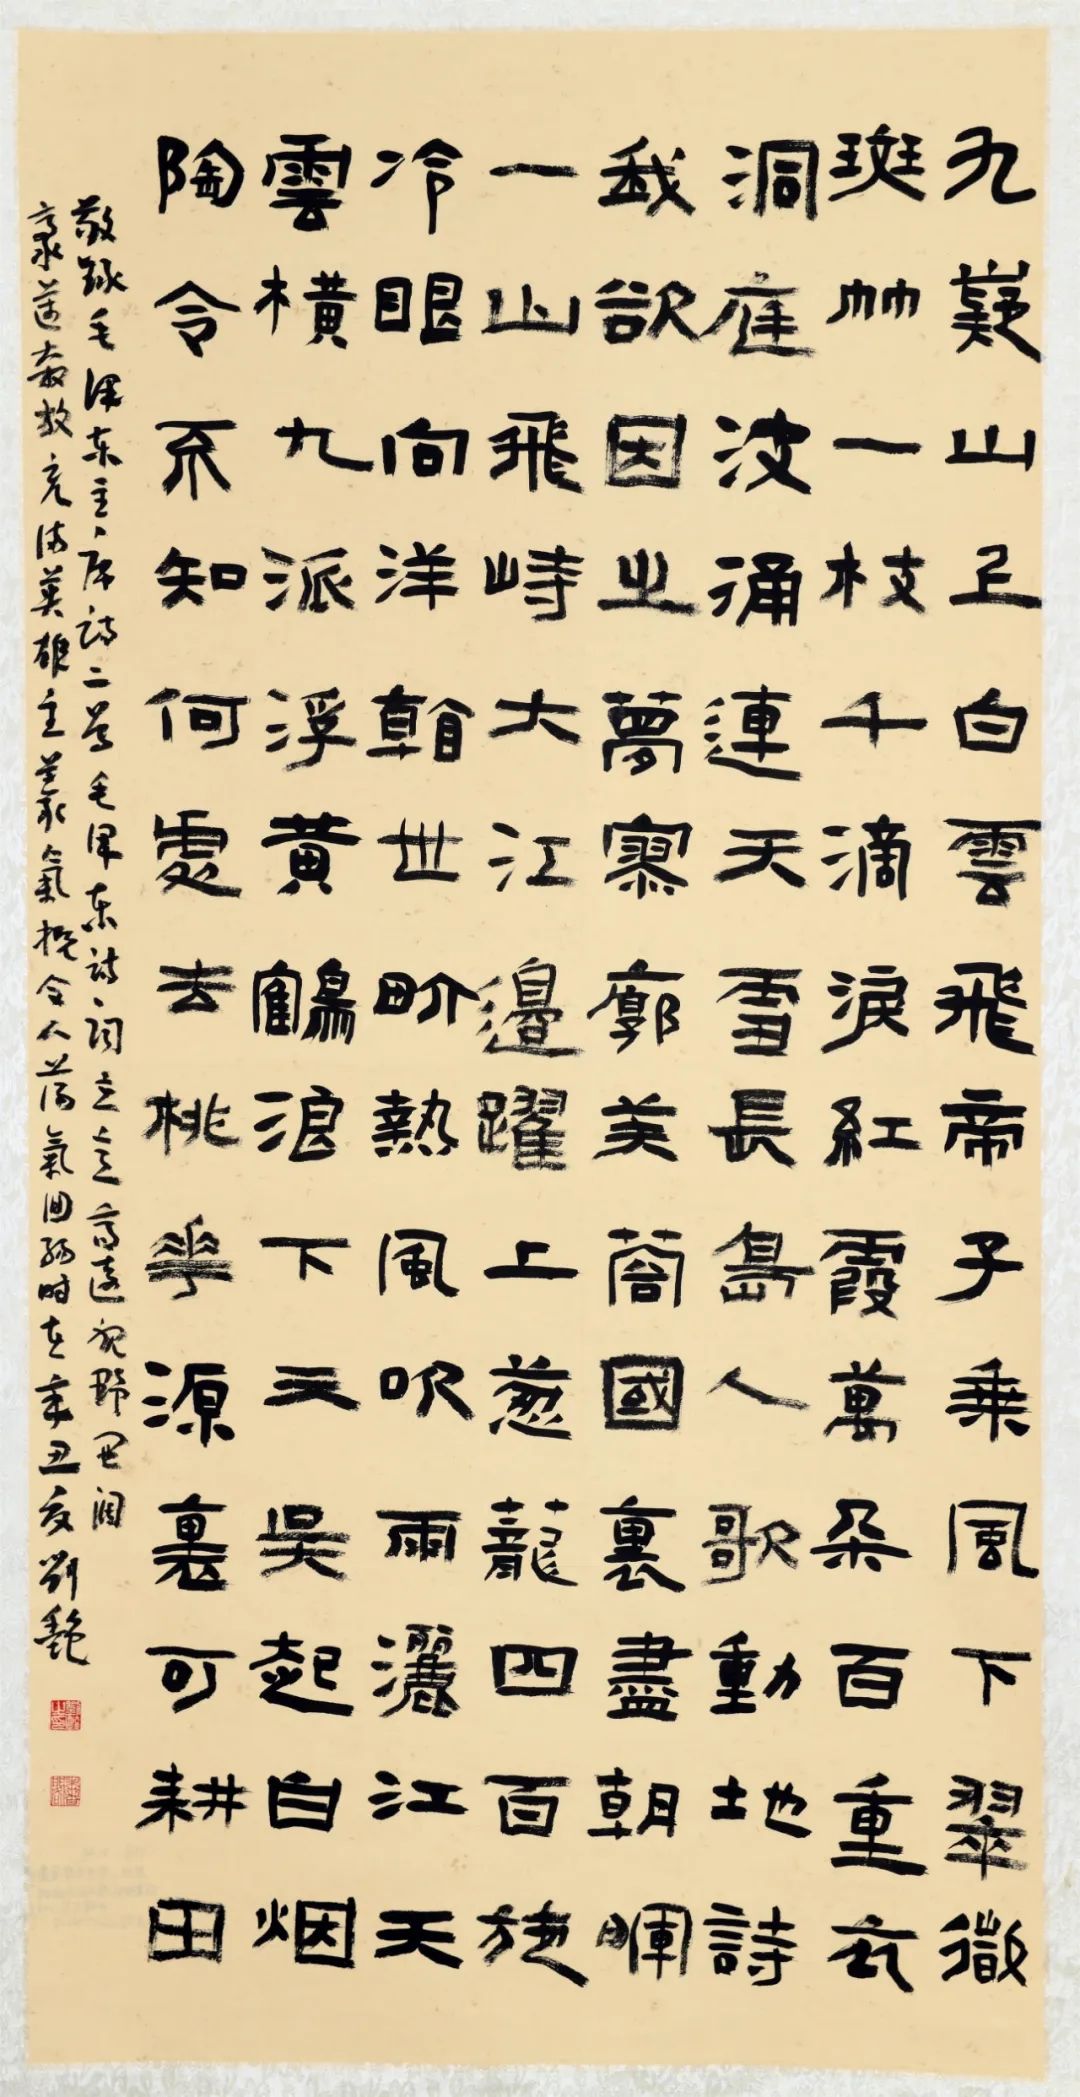 九嶷山上白雲飛帝子乘風下翠微
斑竹一枝千滴淚紅霞萬朵百重衣
洞庭波涌連天雪長島人歌動地詩
我欲因之夢寥廓芙蓉國裏盡朝暉
一山飛峙大江邊躍上葱蘢四百旋
冷眼向洋看世界熱風吹雨灑江天
雲橫九派浮黃鶴浪下三吳起白烟
陶令不知何處去桃華源裏可耕田
敬録毛澤東主席詩二首毛澤東詩詞立意高遠視野開闊
豪邁奔放充滿英雄主義氣概令人蕩氣回腸時在辛丑夏劉艷